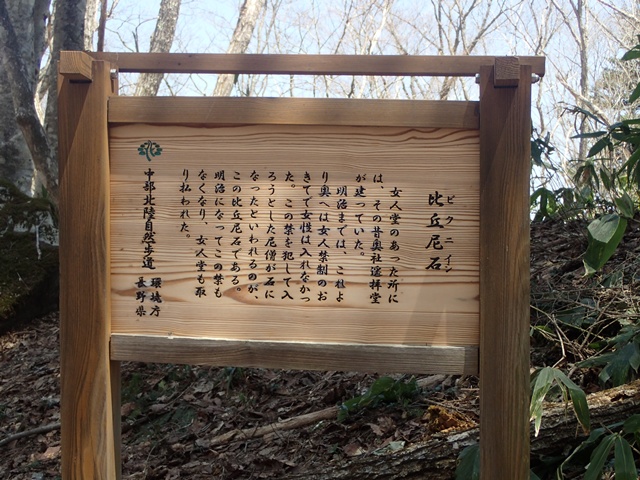 ビクニイシ
比丘尼石
女人堂のあった所に
は、その昔奥社遥拝堂
が建っていた。
明治までは、これよ
り奥へは女人禁制のお
きてで女性は入れなかっ
た。この禁を犯して入
ろうとした尼僧が石に
なったといわれるのが、
この比丘尼石である。
明治になってこの禁も
なくなり、女人堂も取
り払われた。
中部北陸自然歩道 環境庁
長野県